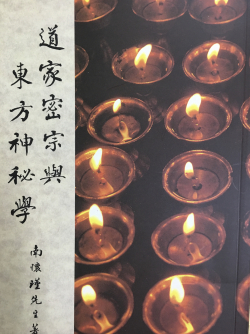 道家密宗與
東方神秘學
南懷瑾先生著